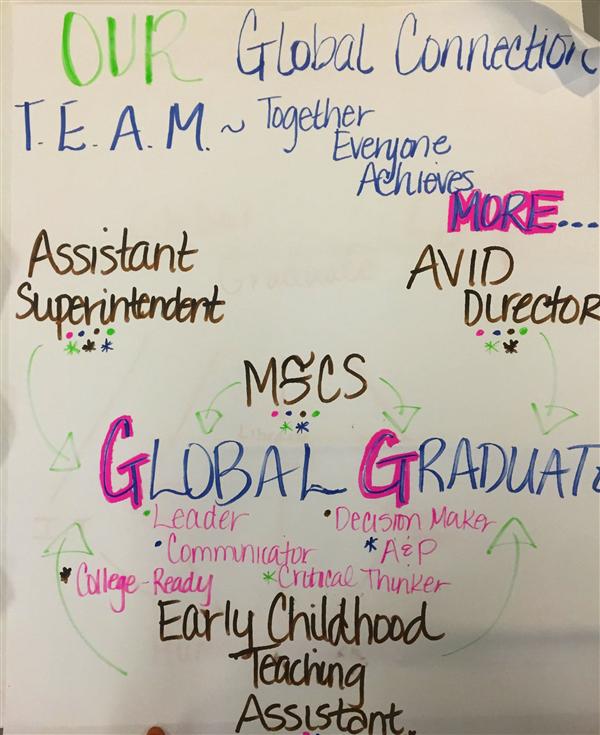 OUR Global Connection
T.E.A.M. ~ Together
Everyone
Achieves
MORE...
Assistant
Superintendent
AVID
Director
MSCS
GLOBAL GRADUATE
• Leader
• Decision Maker
• Communicator
* A&P
* College-Ready
* Critical Thinker
Early Childhood
Teaching
Assistant.